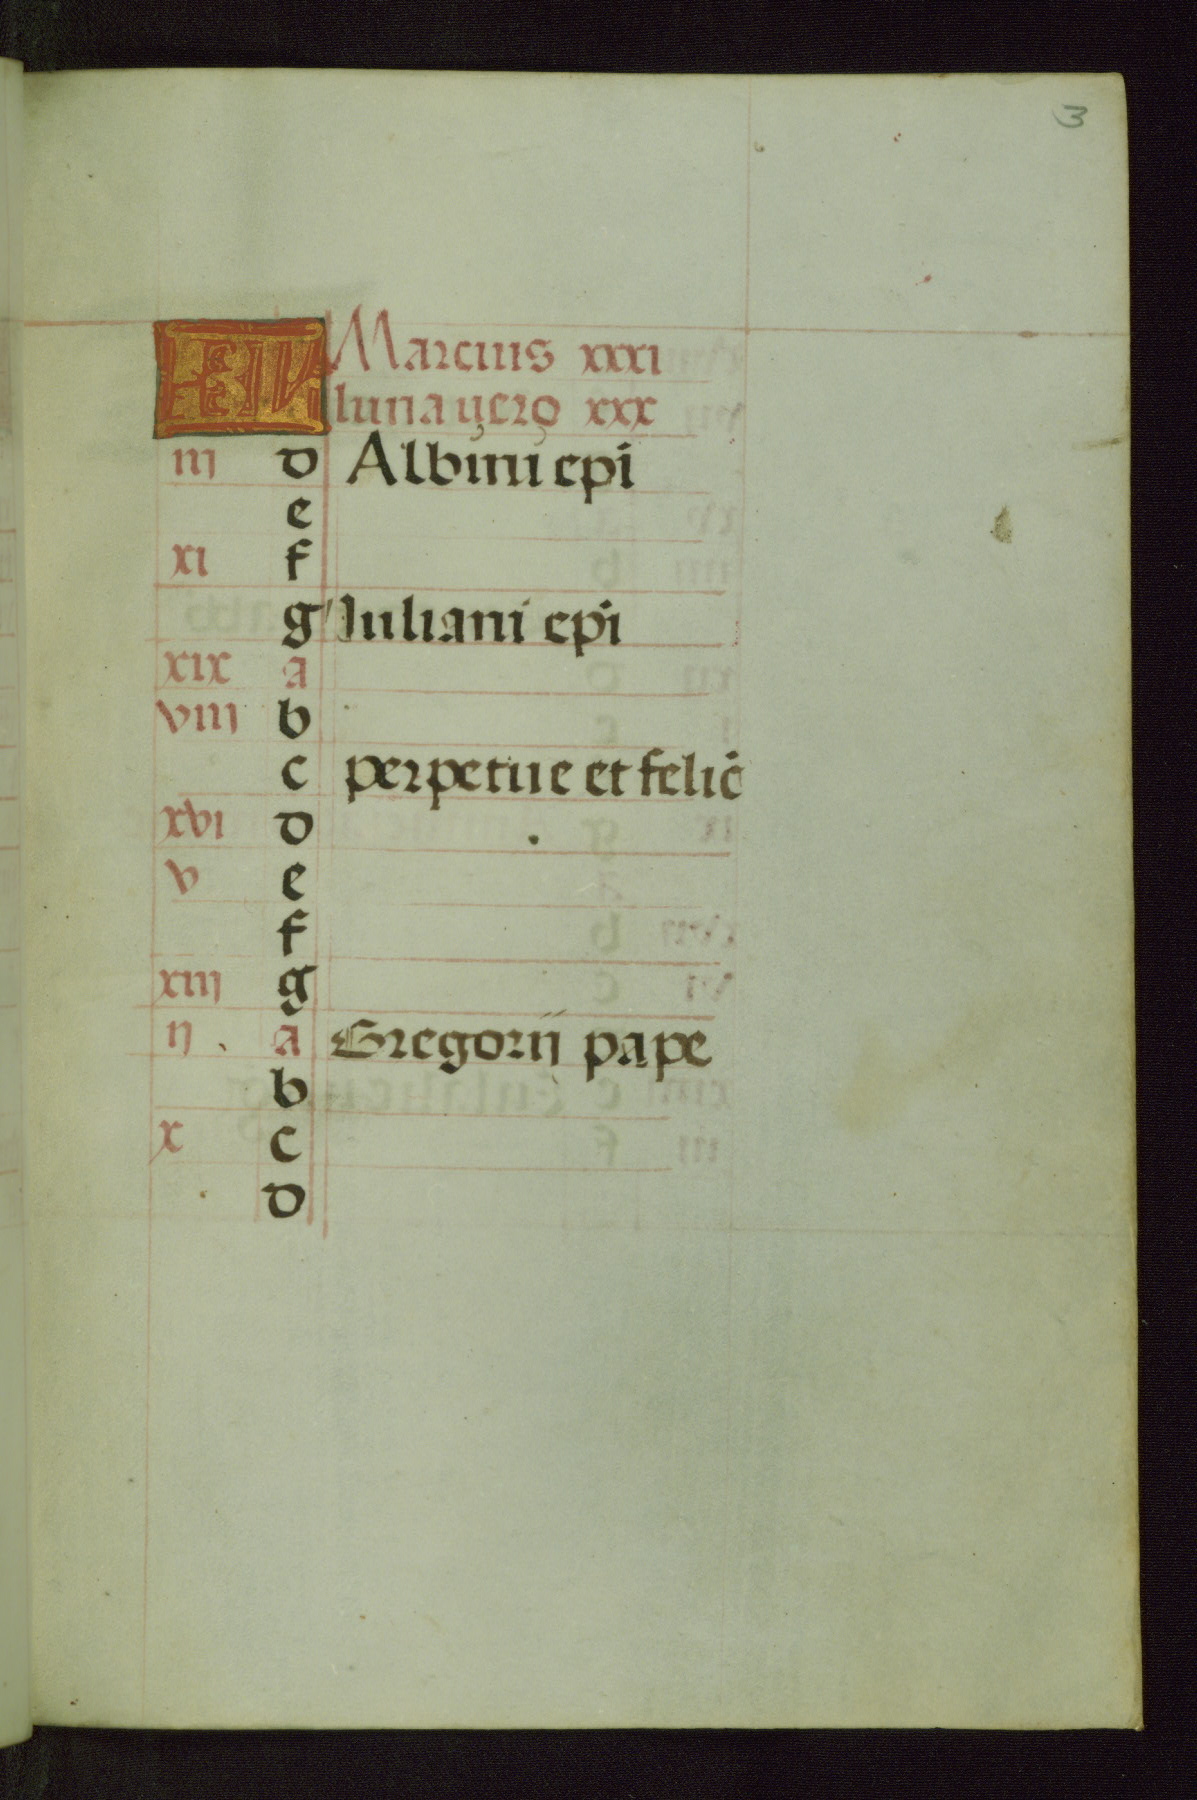 3
KL Marcius xxxi
luna uero xxx
iii d Albini epi
e
xi f
g Iuliani epi
xix a
viii b
c perpetue et felic̄
xvi d
v e
f
xiii g
ii a Gregorii pape
b
x c
d